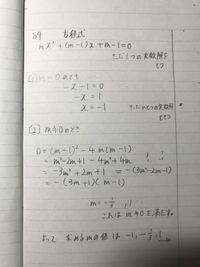 84 方程式
mx²+(m-1)x+m-1=0
ただ1つの実数解を
もつ
[1] m=0のとき
-x-1=0
-x=1
x=-1
ただ1つの実数解
をもつ
[2] m≠0のとき
D=(m-1)²-4m(m-1)
=m²-2m+1-4m²+4m
=-3m²+2m+1 =-(3m²-2m-1)
=-(3m+1)(m-1)
m=-1/3, 1
これは m≠0を満たす。
よって 求めるmの値は -1, -1/3, 1